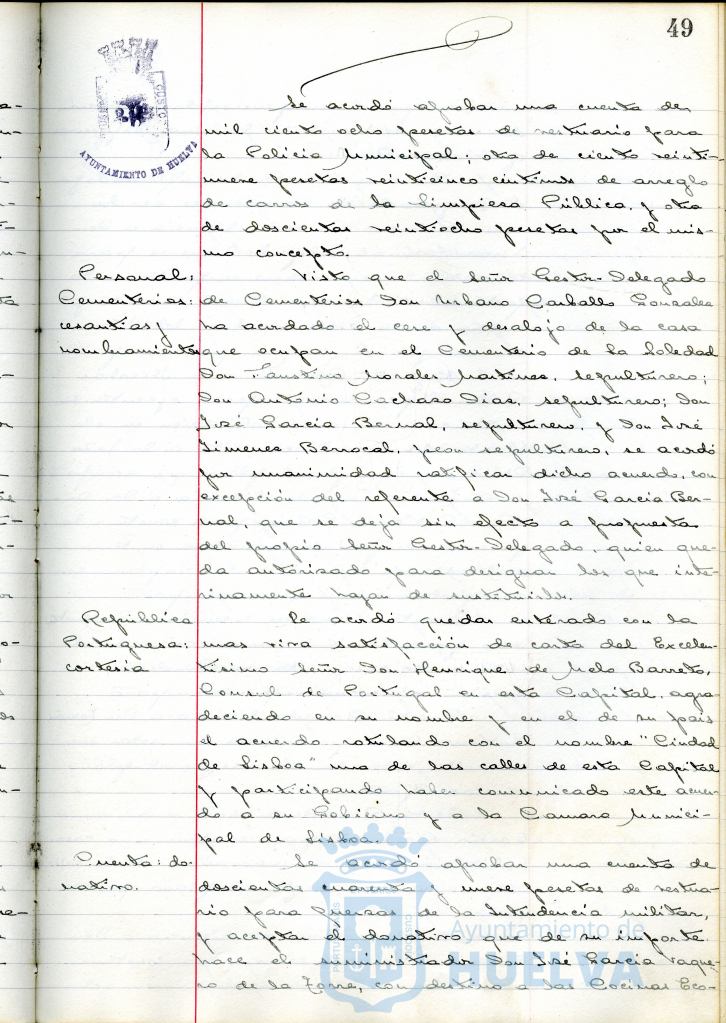 49
AYUNTAMIENTO DE HUELVA
Se acordó aprobar una cuenta de
mil ciento ocho pesetas de vestuario para
la Policía Municipal; otra de ciento veinti-
nueve pesetas veinticinco céntimos de arreglo
de carros de la Limpieza Pública, y otra
de doscientas veintiocho pesetas por el mis-
mo concepto.
Personal:
Cementerios:
cesantías y
nombramientos
Visto que el Señor Gestor-Delegado
de Cementerios Don Urbano Carballo Gonzalez
ha acordado el cese y desalojo de la casa
que ocupan en el Cementerio de la Soledad
Don Faustino Morales Martinez, sepulturero;
Don Antonio Cachazo Dias, sepulturero; Don
José Garcia Bernal, sepulturero, y Don José
Jimenez Berrocal, peon sepulturero, se acordó
por unanimidad ratificar dicho acuerdo, con
excepción del referente a Don José Garcia Ber-
nal, que se deja sin efecto a propuesta
del propio Señor Gestor-Delegado, quien que-
da autorizado para designar los que inte-
rinamente hayan de sustituirle.
República
Portuguesa:
cortesía
Se acordó quedar enterado con la
mas viva satisfacción de carta del Excelen-
tísimo Señor Don Henrique de Melo Barreto,
Consul de Portugal en esta Capital, agra
deciendo en su nombre y en el de su país
el acuerdo rotulando con el nombre "Ciudad
de Lisboa" una de las calles de esta Capital
y participando haber comunicado este acuer-
do a su Gobierno y a la Camara Munici-
pal de Lisboa.
Cuenta: do-
nativo.
Se acordó aprobar una cuenta de
doscientas cuarenta y nueve pesetas de vestua-
rio para fuerzas de la Intendencia militar,
y aceptar el donativo que de su importe
hace el suministrador Don José Garcia Vaque-
ro de la Torre, con destino a las Cocinas Eco-
Ayuntamiento de
HUELVA